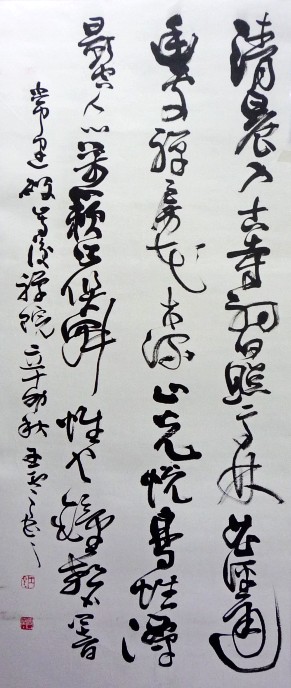 清晨入古寺初日照高林曲徑通
幽處禪房花木深山光悅鳥性潭
影空人心萬籟此俱寂惟聞鐘磬音
常建破山寺後禪院辛卯秋